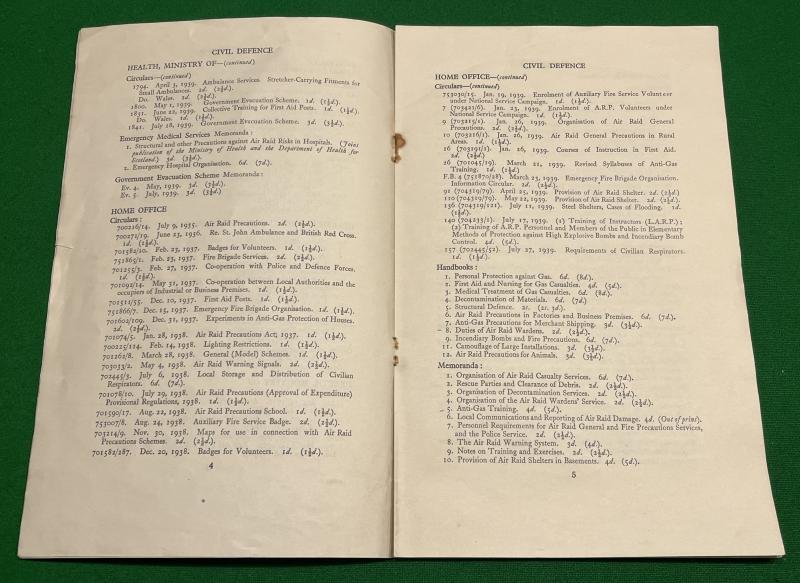 CIVIL DEFENCE
HEALTH, MINISTRY OF—(continued)
Circulars—(continued)
1794. April 3, 1939. Ambulance Services. Stretcher-Carrying Fitments for
Small Ambulances. 2d. (2½d.).
Do. Wales. 2d. (2½d.).
1800. May 1, 1939. Government Evacuation Scheme. 1d. (1½d.).
1831. June 22, 1939. Collective Training for First Aid Posts. 1d. (1½d.).
Do. Wales. 1d. (1½d.).
1841. July 18, 1939. Government Evacuation Scheme. 3d. (3½d.).
Emergency Medical Services Memoranda :
1. Structural and other Precautions against Air Raid Risks in Hospitals. (Joint
publication of the Ministry of Health and the Department of Health for
Scotland.) 3d. (3½d.).
2. Emergency Hospital Organisation. 6d. (7d.).
Government Evacuation Scheme Memoranda :
Ev. 4. May, 1939. 3d. (3½d.).
Ev. 5. July, 1939. 3d. (3½d.).
HOME OFFICE
Circulars :
700216/14. July 9, 1935. Air Raid Precautions. 2d. (2½d.).
700271/19. June 23, 1936. Re. St. John Ambulance and British Red Cross.
1d. (1½d.).
701582/10. Feb. 23, 1937. Badges for Volunteers. 1d. (1½d.).
751865/1. Feb. 23, 1937. Fire Brigade Services. 2d. (2½d.).
701255/3. Feb. 27, 1937. Co-operation with Police and Defence Forces.
1d. (1½d.).
701092/14. May 31, 1937. Co-operation between Local Authorities and the
occupiers of Industrial or Business Premises. 1d. (1½d.).
701511/55. Dec. 10, 1937. First Aid Posts. 1d. (1½d.).
751866/7. Dec. 15, 1937. Emergency Fire Brigade Organisation. 1d. (1½d.).
701602/109. Dec. 31, 1937. Experiments in Anti-Gas Protection of Houses.
2d. (2½d.).
701074/5. Jan. 28, 1938. Air Raid Precautions Act; 1937. 1d. (1½d.).
700225/114. Feb. 14, 1938. Lighting Restrictions. 1d. (1½d.).
701262/8. March 28, 1938. General (Model) Schemes. 1d. (1½d.).
703033/2. May 4, 1938. Air Raid Warning Signals. 2d. (2½d.).
702445/3. July 6, 1938. Local Storage and Distribution of Civilian
Respirators. 6d. (7d.).
701078/10. July 29, 1938. Air Raid Precautions (Approval of Expenditure)
Provisional Regulations, 1938. 1d. (1½d.).
701590/17. Aug. 22, 1938. Air Raid Precautions School. 1d. (1½d.).
753007/8. Aug. 24, 1938. Auxiliary Fire Service Badge. 2d. (2½d.).
703214/9. Nov. 30, 1938. Maps for use in connection with Air Raid
Precautions Schemes. 2d. (2½d.).
701582/287. Dec. 20, 1938. Badges for Volunteers. 1d. (1½d.).
4
CIVIL DEFENCE
HOME OFFICE—(continued)
Circulars—(continued)
753030/15. Jan. 19, 1939. Enrolment of Auxiliary Fire Service Volunteer
under National Service Campaign. 1d. (1½d.).
7 (703421/6). Jan. 23, 1939. Enrolment of A.R.P. Volunteers under
National Service Campaign. 1d. (1½d.).
9 (703215/1). Jan. 26, 1939. Organisation of Air Raid General
Precautions. 2d. (2½d.).
10 (703216/1). Jan. 26, 1939. Air Raid General Precautions in Rural
Areas. 1d. (1½d.).
16 (703191/1). Jan. 26, 1939. Courses of Instruction in First Aid.
2d. (2½d.).
26 (701045/19). March 21, 1939. Revised Syllabuses of Anti-Gas
Training. 1d. (1½d.)
F.B. 4 (751870/28). March 23, 1939. Emergency Fire Brigade Organisation.
Information Circular. 2d. (2½d.).
91 (704319/79). April 25, 1939. Provision of Air Raid Shelter. 2d. (2½d.)
120 (704319/79). May 22, 1939. Provision of Air Raid Shelter. 2d. (2½d.).
136 (704319/121). July 11, 1939. Steel Shelters, Cases of Flooding. 1d.
(1½d.).
140 (704233/1). July 17, 1939. (1) Training of Instructors (L.A.R.P.) ;
(2) Training of A.R.P. Personnel and Members of the Public in Elementary
Methods of Protection against High Explosive Bombs and Incendiary Bomb
Control. 4d. (5d.).
157 (702445/52). July 27, 1939. Requirements of Civilian Respirators.
1d. (1½d.).
Handbooks :
1. Personal Protection against Gas. 6d. (8d.).
2. First Aid and Nursing for Gas Casualties. 4d. (5d.).
3. Medical Treatment of Gas Casualties. 6d. (8d.).
4. Decontamination of Materials. 6d. (7d.)
5. Structural Defence. 2s. (2s. 3d.).
6. Air Raid Precautions in Factories and Business Premises. 6d. (7d.).
7. Anti-Gas Precautions for Merchant Shipping. 3d. (3½d.).
8. Duties of Air Raid Wardens. 2d. (2½d.).
9. Incendiary Bombs and Fire Precautions. 6d. (7d.).
11. Camouflage of Large Installations. 3d. (3½d.).
12. Air Raid Precautions for Animals. 3d. (3½d.).
Memoranda :
1. Organisation of Air Raid Casualty Services. 6d. (7d.).
2. Rescue Parties and Clearance of Debris. 2d. (2½d.).
3. Organisation of Decontamination Services. 2d. (2½d.).
4. Organisation of the Air Raid Wardens' Service. 2d. (2½d.).
5. Anti-Gas Training. 4d. (5d.).
6. Local Communications and Reporting of Air Raid Damage. 4d. (Out of print).
7. Personnel Requirements for Air Raid General and Fire Precautions Services,
and the Police Service. 2d. (2½d.).
8. The Air Raid Warning System. 3d. (4d.).
9. Notes on Training and Exercises. 2d. (2½d.).
10. Provision of Air Raid Shelters in Basements. 4d. (5d.).
5